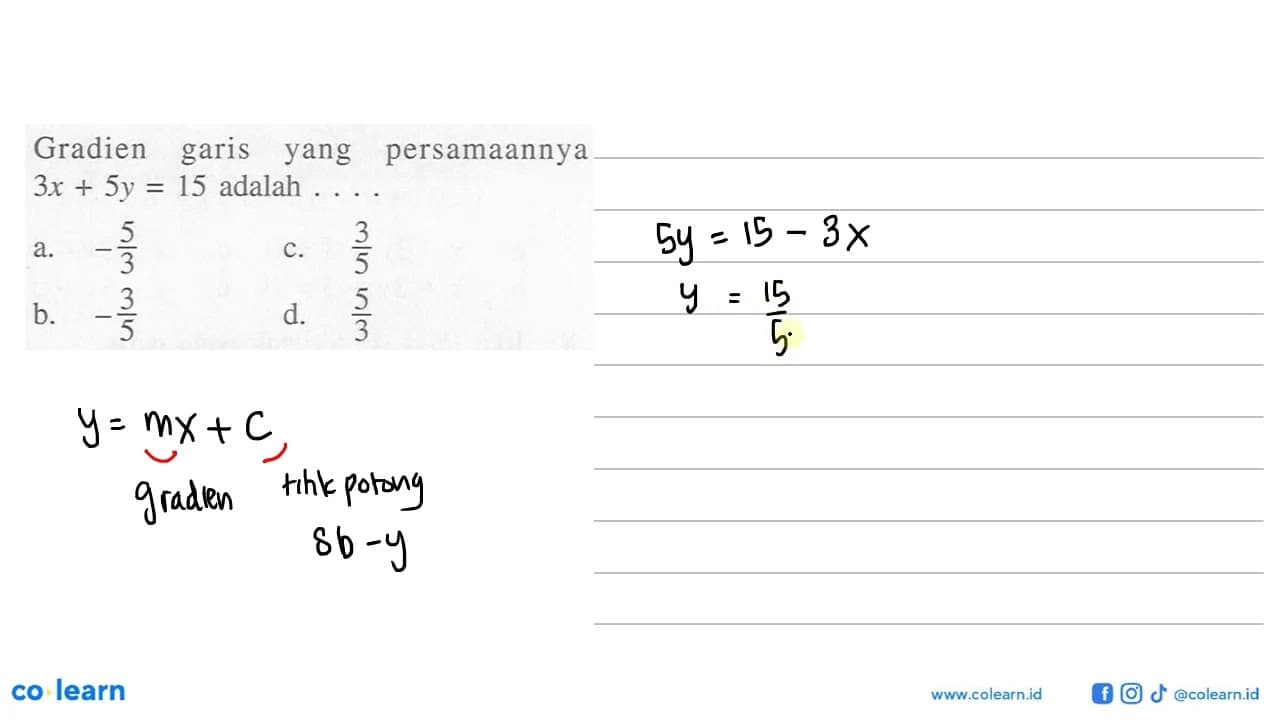 Gradien garis yang persamaannya
3x + 5y = 15 adalah . . . .
a. -5/3 c. 3/5
b. -3/5 d. 5/3
5y = 15 - 3x
y = 15/5
y = mx + c
gradien titik potong
sb-y
co learn
www.colearn.id @colearn.id